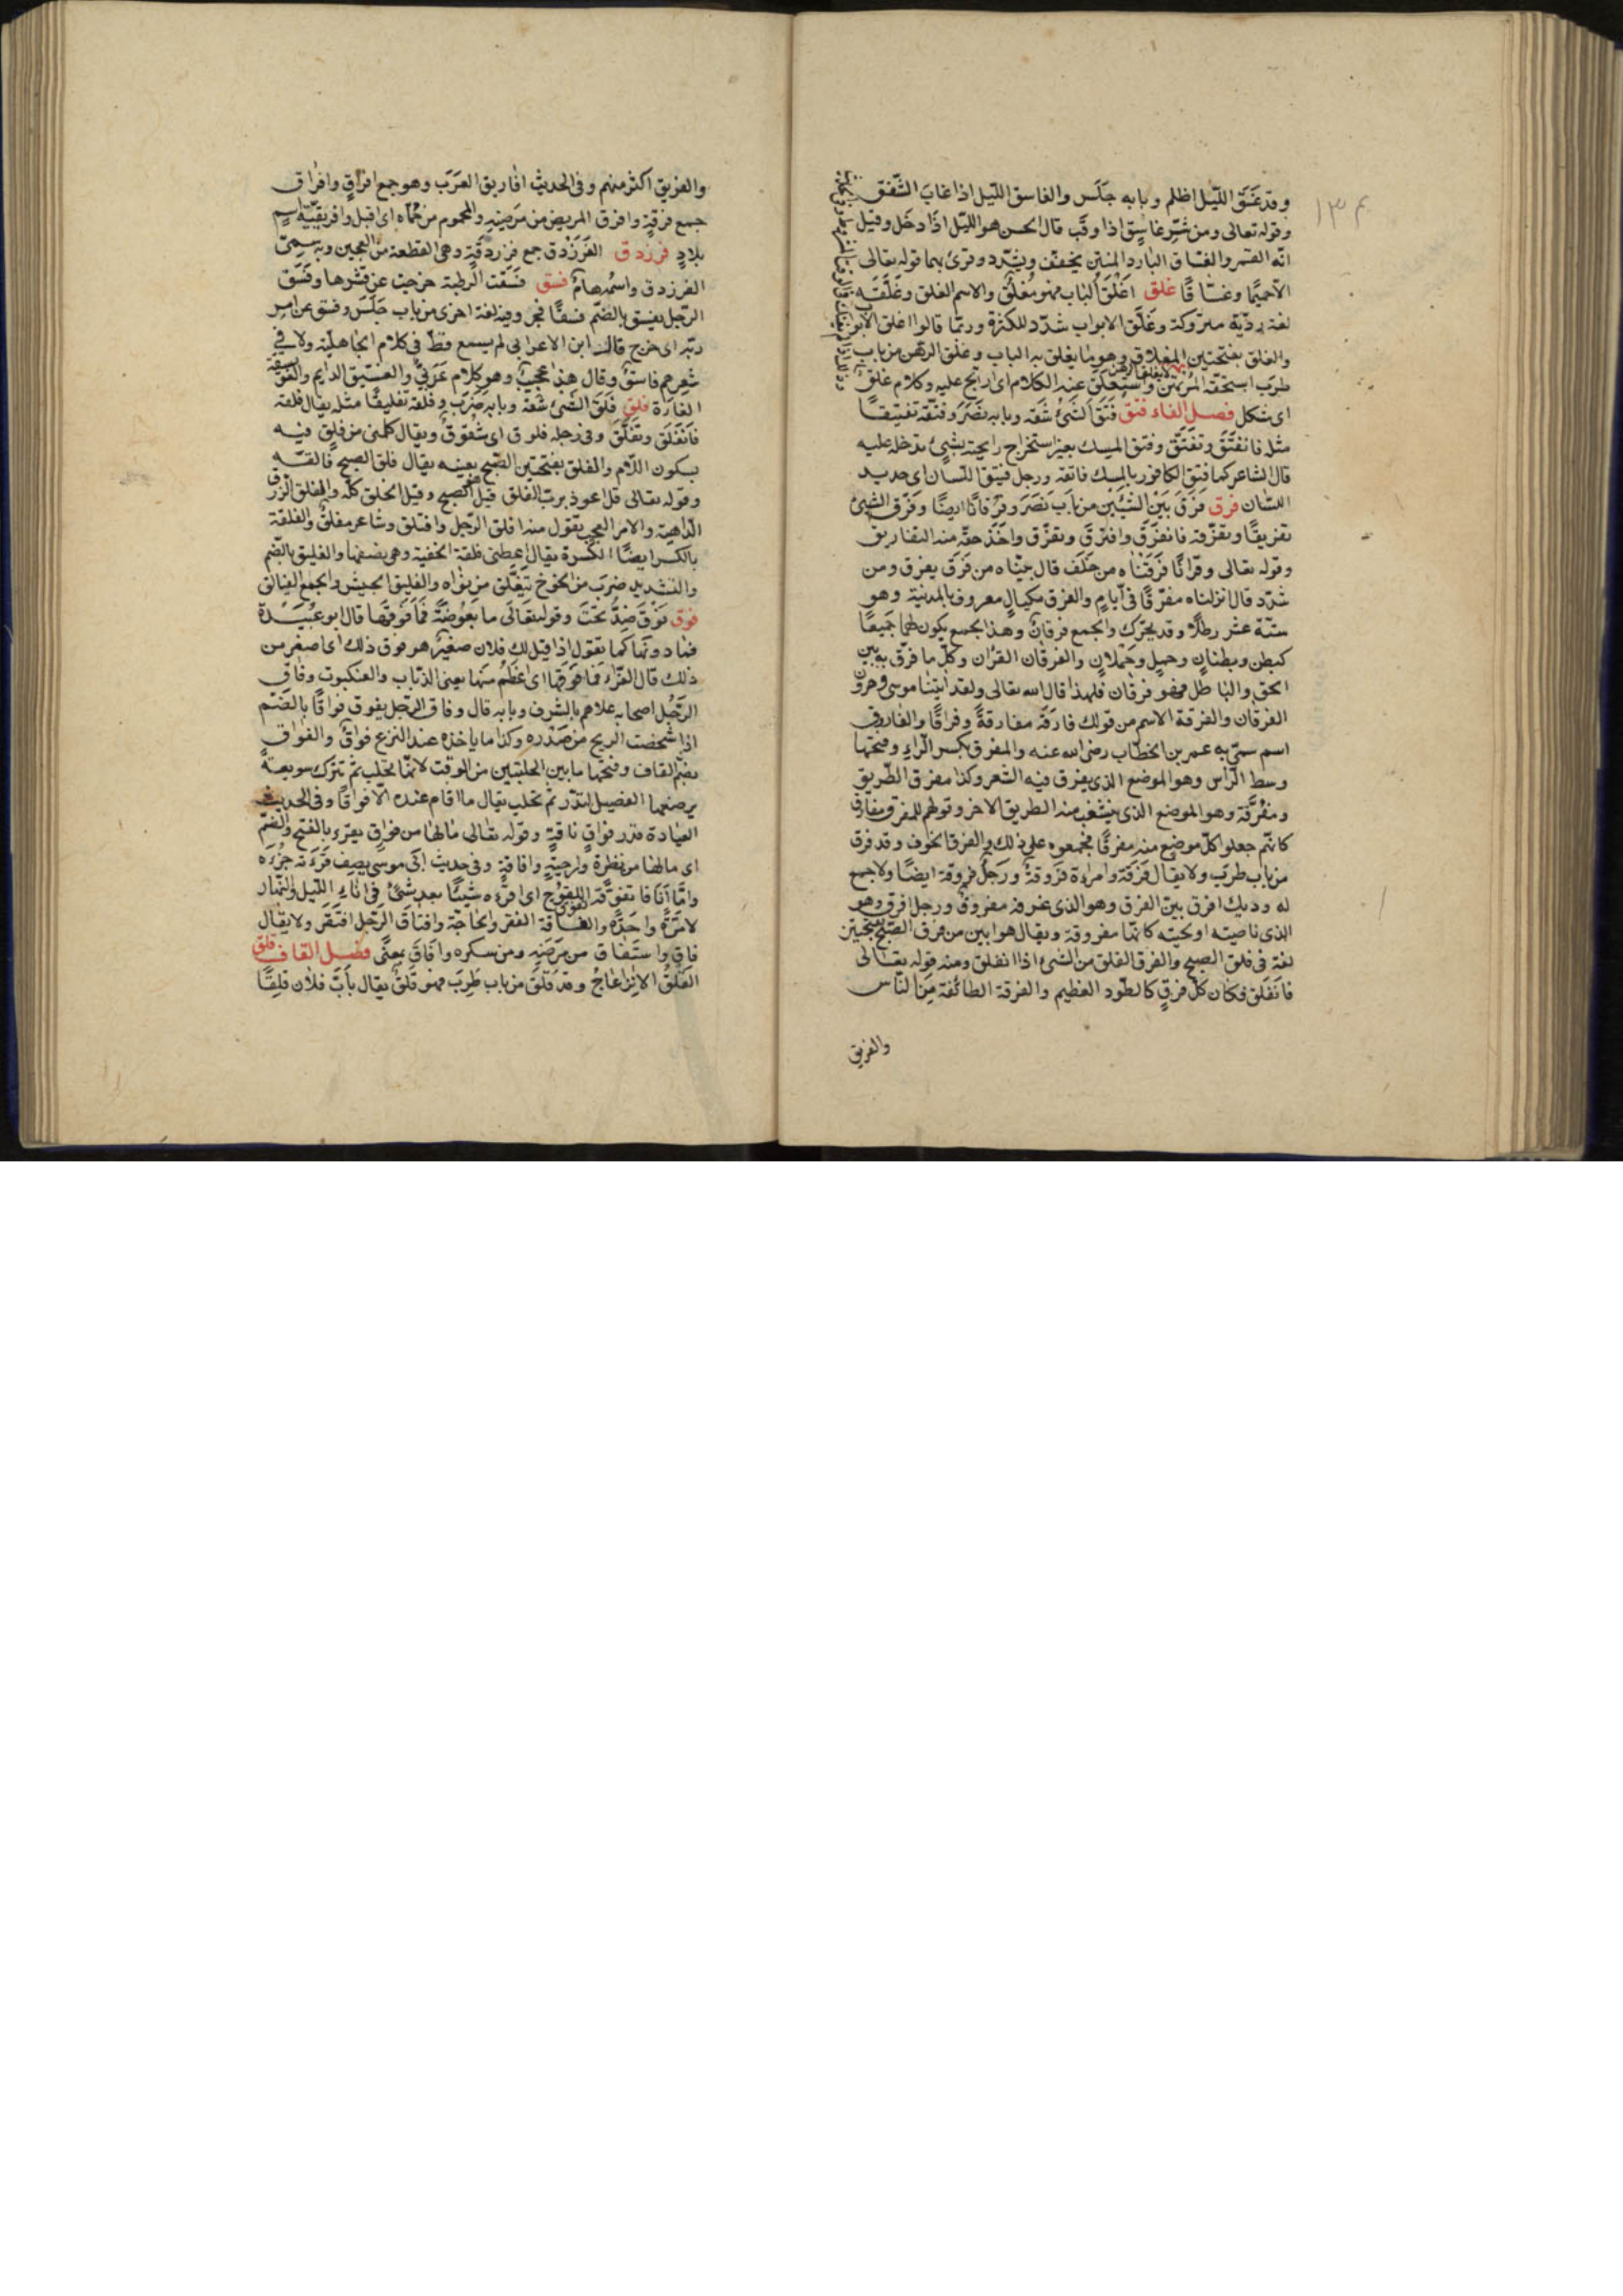 وقد غسق الليل اظلم وبابه جلس والغاسق الليل اذا غاب الشفق
وقوله تعالى ومن شر غاسق اذا وقب قال الحسن هو الليل اذا دخل وقيل
انه القمر والغساق البارد المنتن يخفف ويشدد وقرئ بهما قوله تعالى
الا حميما وغساقا غلق اغلق الباب فهو مغلق والاسم الغلق وغلقه
لغة ردية متروكة وغلق الابواب شدد للكثرة وربما قالوا اغلق الابواب
والغلق بفتحتين المغلاق وهو ما يغلق به الباب وغلق الرهن من باب
طرب استحقه المرتهن واستغلق عليه الكلام اى ارتج عليه وكلام غلق
اى شكل فصل الفاء فتق فتق الشئ شقه وبابه نصر وفتقه تفتيقا
مثله فانفتق وتفتق وفتق المسك بغيره استخراج رايحته بشئ تدخله عليه
قال الشاعر كما فتق الكافور بالمسك فاتقه ورجل فتيق اللسان اى حديد
اللسان فرق فرق بين الشيئين من باب نصر وفرقانا ايضا وفرق الشئ
تفريقا وتفرقة فانفرق وافترق وتفرق واخذ حقه منه التفاريق
وقوله تعالى وقرانا فرقناه من خفف قال بيناه من فرق يفرق ومن
شدد قال انزلناه مفرقا فى ايام والفرق مكيال معروف بالمدينة وهو
ستة عشر رطلا وقد يحرك والجمع فرقان وهذا الجمع يكون لهما جميعا
كبطن وبطنان وحمل وحملان والفرقان القران وكل ما فرق به بين
الحق والباطل فهو فرقان فلهذا قال الله تعالى ولقد اتينا موسى وهرون
الفرقان والفرقة الاسم من قولك فارقه مفارقة وفراقا والفاروق
اسم سمى به عمر بن الخطاب رضى الله عنه والمفرق بكسر الراء وفتحها
وسط الراس وهو الموضع الذى يفرق فيه الشعر وكذا مفرق الطريق
ومفرقه وهو الموضع الذى ينشعب منه الطريق الاخر وقولهم للمفرق مفارق
كانهم جعلوا كل موضع منه مفرقا فجمعوه على ذلك والفرق الخوف وقد فرق
من باب طرب ولا يقال فرقه وامراة فروقة ورجل فروقة ايضا ولا جمع
له وديك افرق بين الفرق وهو الذى عرفه مفروق ورجل افرق وهو
الذى ناصيته او لحيته كانها مفروقة ويقال هو ابين من فرق الصبح بفتحتين
لغة فى فلق الصبح والفرق الفلق من الشئ اذا انفلق ومنه قوله تعالى
فانفلق فكان كل فرق كالطود العظيم والفرقة الطائفة من الناس
والفريق
والفريق اكثر منهم وفى الحديث افاريق العرب وهو جمع افراق وافراق
جمع فرقة وافرق المريض من مرضه والمحموم من حماه اى اقبل وافريقية اسم
بلاد فرزدق الفرزدق جمع فرزدقة وهى القطعة من العجين وبه سمى
الفرزدق واسمه همام فسق فسقت الرطبة خرجت عن قشرها وفسق
الرجل يفسق بالضم فسقا فجر وفيه لغة اخرى من باب جلس وفسق عن امر
ربه اى خرج قال ابن الاعرابى لم يسمع قط فى كلام الجاهلية ولا فى
شعرهم فاسق وقال هذا عجيب وهو كلام عربى والفسيق الدايم والفويسقة
الفارة فلق فلق الشئ شقه وبابه ضرب وفلقه تفليقا مثله يقال فلقه
فانفلق وتفلق وفى رجله فلوق اى شقوق ويقال كلمنى من فلق فيه
بسكون اللام والفلق بفتحتين الصبح بعينه يقال فلق الصبح فالقه
وقوله تعالى قل اعوذ برب الفلق قيل هو الصبح وقيل الخلق كله والفلق
الداهية والامر العجب يقول منه افلق الرجل وافتلق وشاعر مفلق والفلقة
بالكسر ايضا الكسرة يقال اعطنى فلقة الجفنة وهى نصفها والفليق بالضم
والتشديد ضرب من الخوخ يتفلق من نواه والفليق الجيش والجمع الفيالق
فوق فوق ضد تحت وقوله تعالى ما بعوضة فما فوقها قال ابو عبيدة
فما دونها كما تقول اذا قيل لك فلان صغير هو فوق ذلك اى اصغر من
ذلك قال الفراء فما فوقها اى اعظم منها يعنى الذباب والعنكبوت وفاق
الرجل اصحابه علاهم بالشرف وبابه قال وفاق الرجل يفوق فواقا بالضم
اذا شخصت الريح من صدره وكذا ما ياخذه عند النزع فواق والفواق
بضم القاف وفتحها ما بين الحلبتين من الوقت لانها تحلب ثم تترك سويعة
يرضعها الفصيل لتدر ثم تحلب يقال ما اقام عنده الا فواقا وفى الحديث
العيادة قدر فواق ناقة وقوله تعالى ما لها من فواق يقرء بالفتح والضم
اى ما لها من نظرة وراحة وافاقة وفى حديث ابى موسى يصف قرءته جزءه
واما انا فاتفوقه تفوق اللقوح اى اقرءه شيئا بعد شئ فى اناء الليل والنهار
لا مرة واحدة والفاقة الفقر والحاجة وافتاق الرجل افتقر ولا يقال
فاق واستفاق من مرضه ومن سكره وافاق بمعنى فصل القاف قلق
القلق الانزعاج وقد قلق من باب طرب فهو قلق يقال بات فلان قلقا